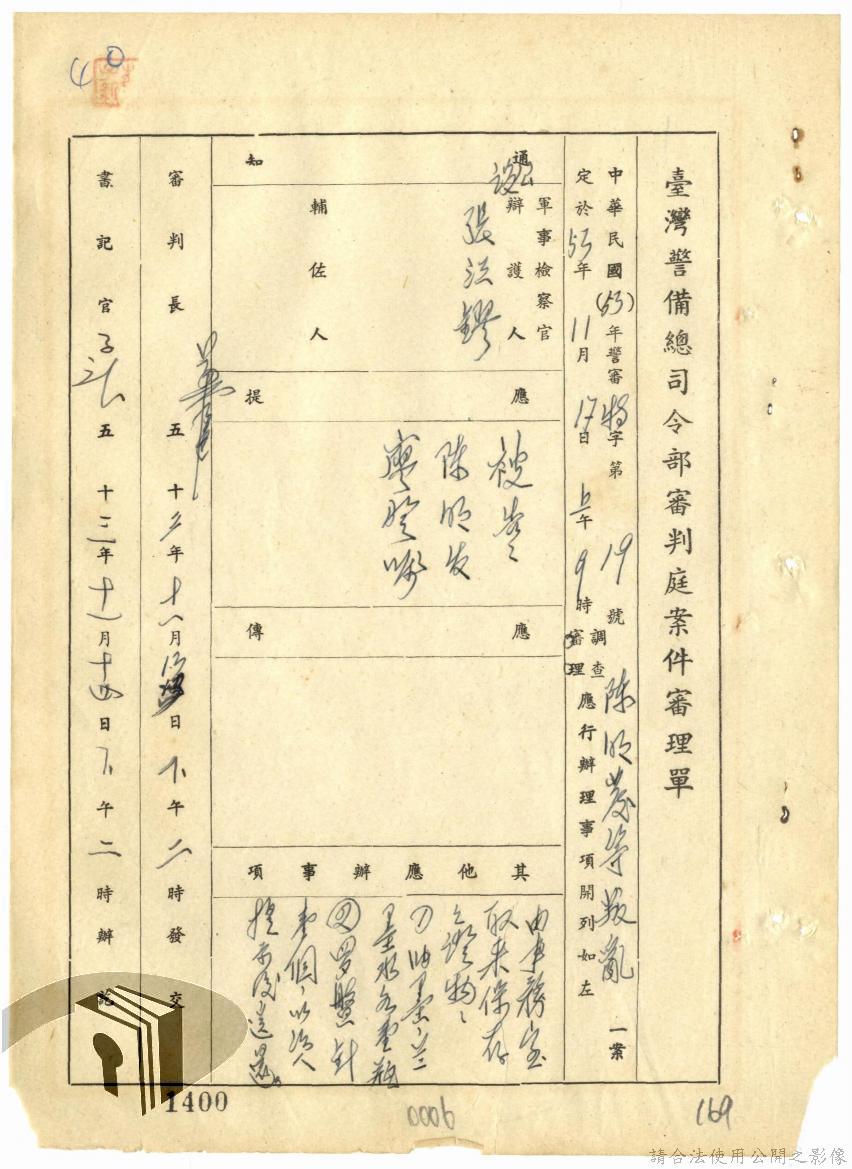 40
臺灣警備總司令部審判庭案件審理單
中華民國(53)年警審特字第19號陳明發等叛亂一案
定於53年11月17日上午9時調查審理應行辦理事項開列如左
通知
軍事檢察官
辯護人
設公
張法鏐
輔佐人
應提
被告:
陳明发
廖登
應傳
其他應辦事項
由事務室
取来保存
之證物:
(1)油墨、兰
墨水各壹瓶
(2)罗盤針
壹個,以
提示後送還。
審判長 五十三年十一月 日下午二時發交
書記官 五十三年十一月十四日下午二時辦訖
1400
0006
169
請合法使用公開之影像